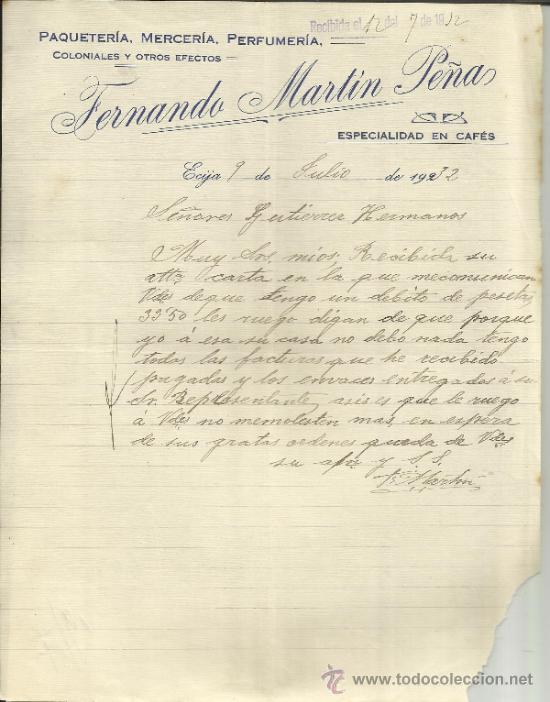 Recibida el 12 del 7 de 1932
PAQUETERÍA, MERCERÍA, PERFUMERÍA,
COLONIALES Y OTROS EFECTOS
Fernando Martín Peña
ESPECIALIDAD EN CAFÉS
Ecija 9 de Julio de 1932
Señores Gutierrez Hermanos
Muy Srs. mios, Recibida su
atta carta en la que meconsenican
Vdes deque tengo un debito de pesetas
33'50 les ruego digan de que porque
yo á esa su casa no debo nada tengo
todas las facturas que he recibido
pagadas y los envaces entregados á su
Sr. Representante, asis es que le ruego
á Vdes no memolesten mas, en espera
de sus gratas ordenes queda de Vdes
su y S. S.
F. Martin
www.todocoleccion.net